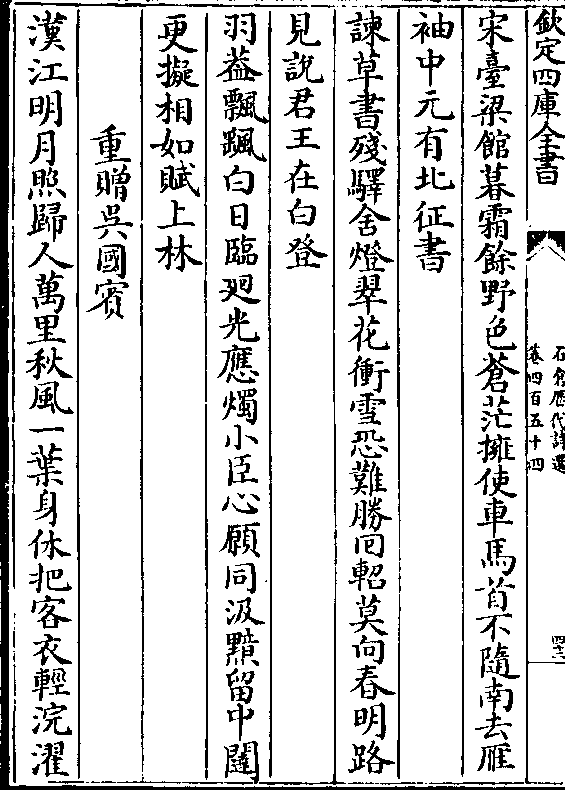 欽定四庫全書
石倉歷代詩選
卷四百五十四
四十二
宋臺梁館暮霜餘野色蒼茫擁使車馬首不隨南去雁
袖中元有北征書
諫草書殘驛舍燈翠花衝雪恐難勝回軺莫向春明路
見說君王在白登
羽葢飄颻白日臨廻光應燭小臣心願同汲黯留中闥
更擬相如賦上林
重贈吳國賓
漢江明月照歸人萬里秋風一葉身休把客衣輕浣濯